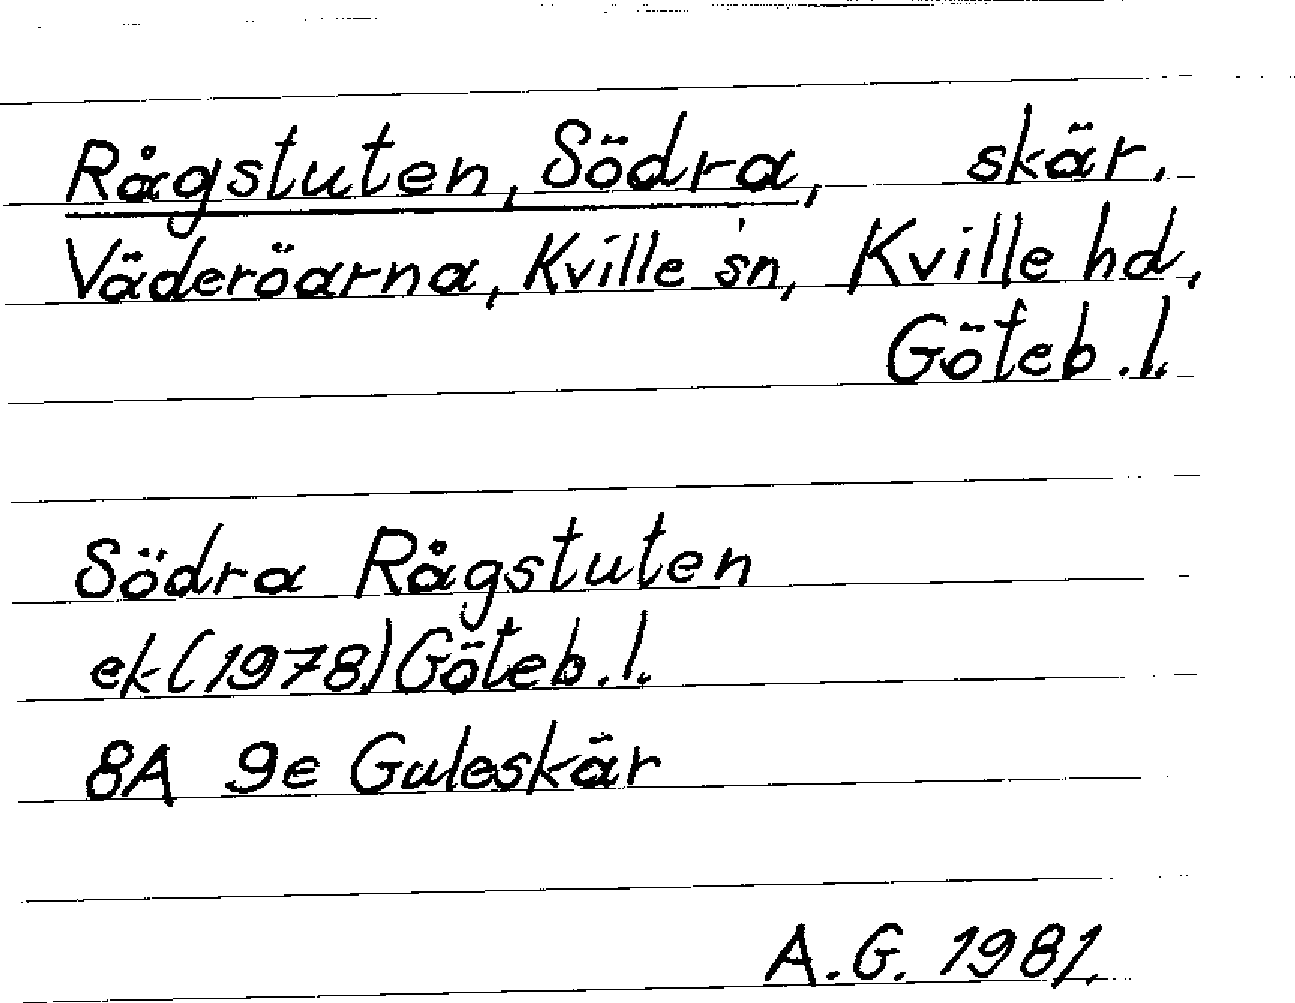 Rågstuten, Södra, skär.
Väderöarna, Kville sn, Kville hd,
Göteb.l.
Södra Rågstuten
ek (1978) Göteb.l.
8A 9e Guleskär
A.G. 1981.